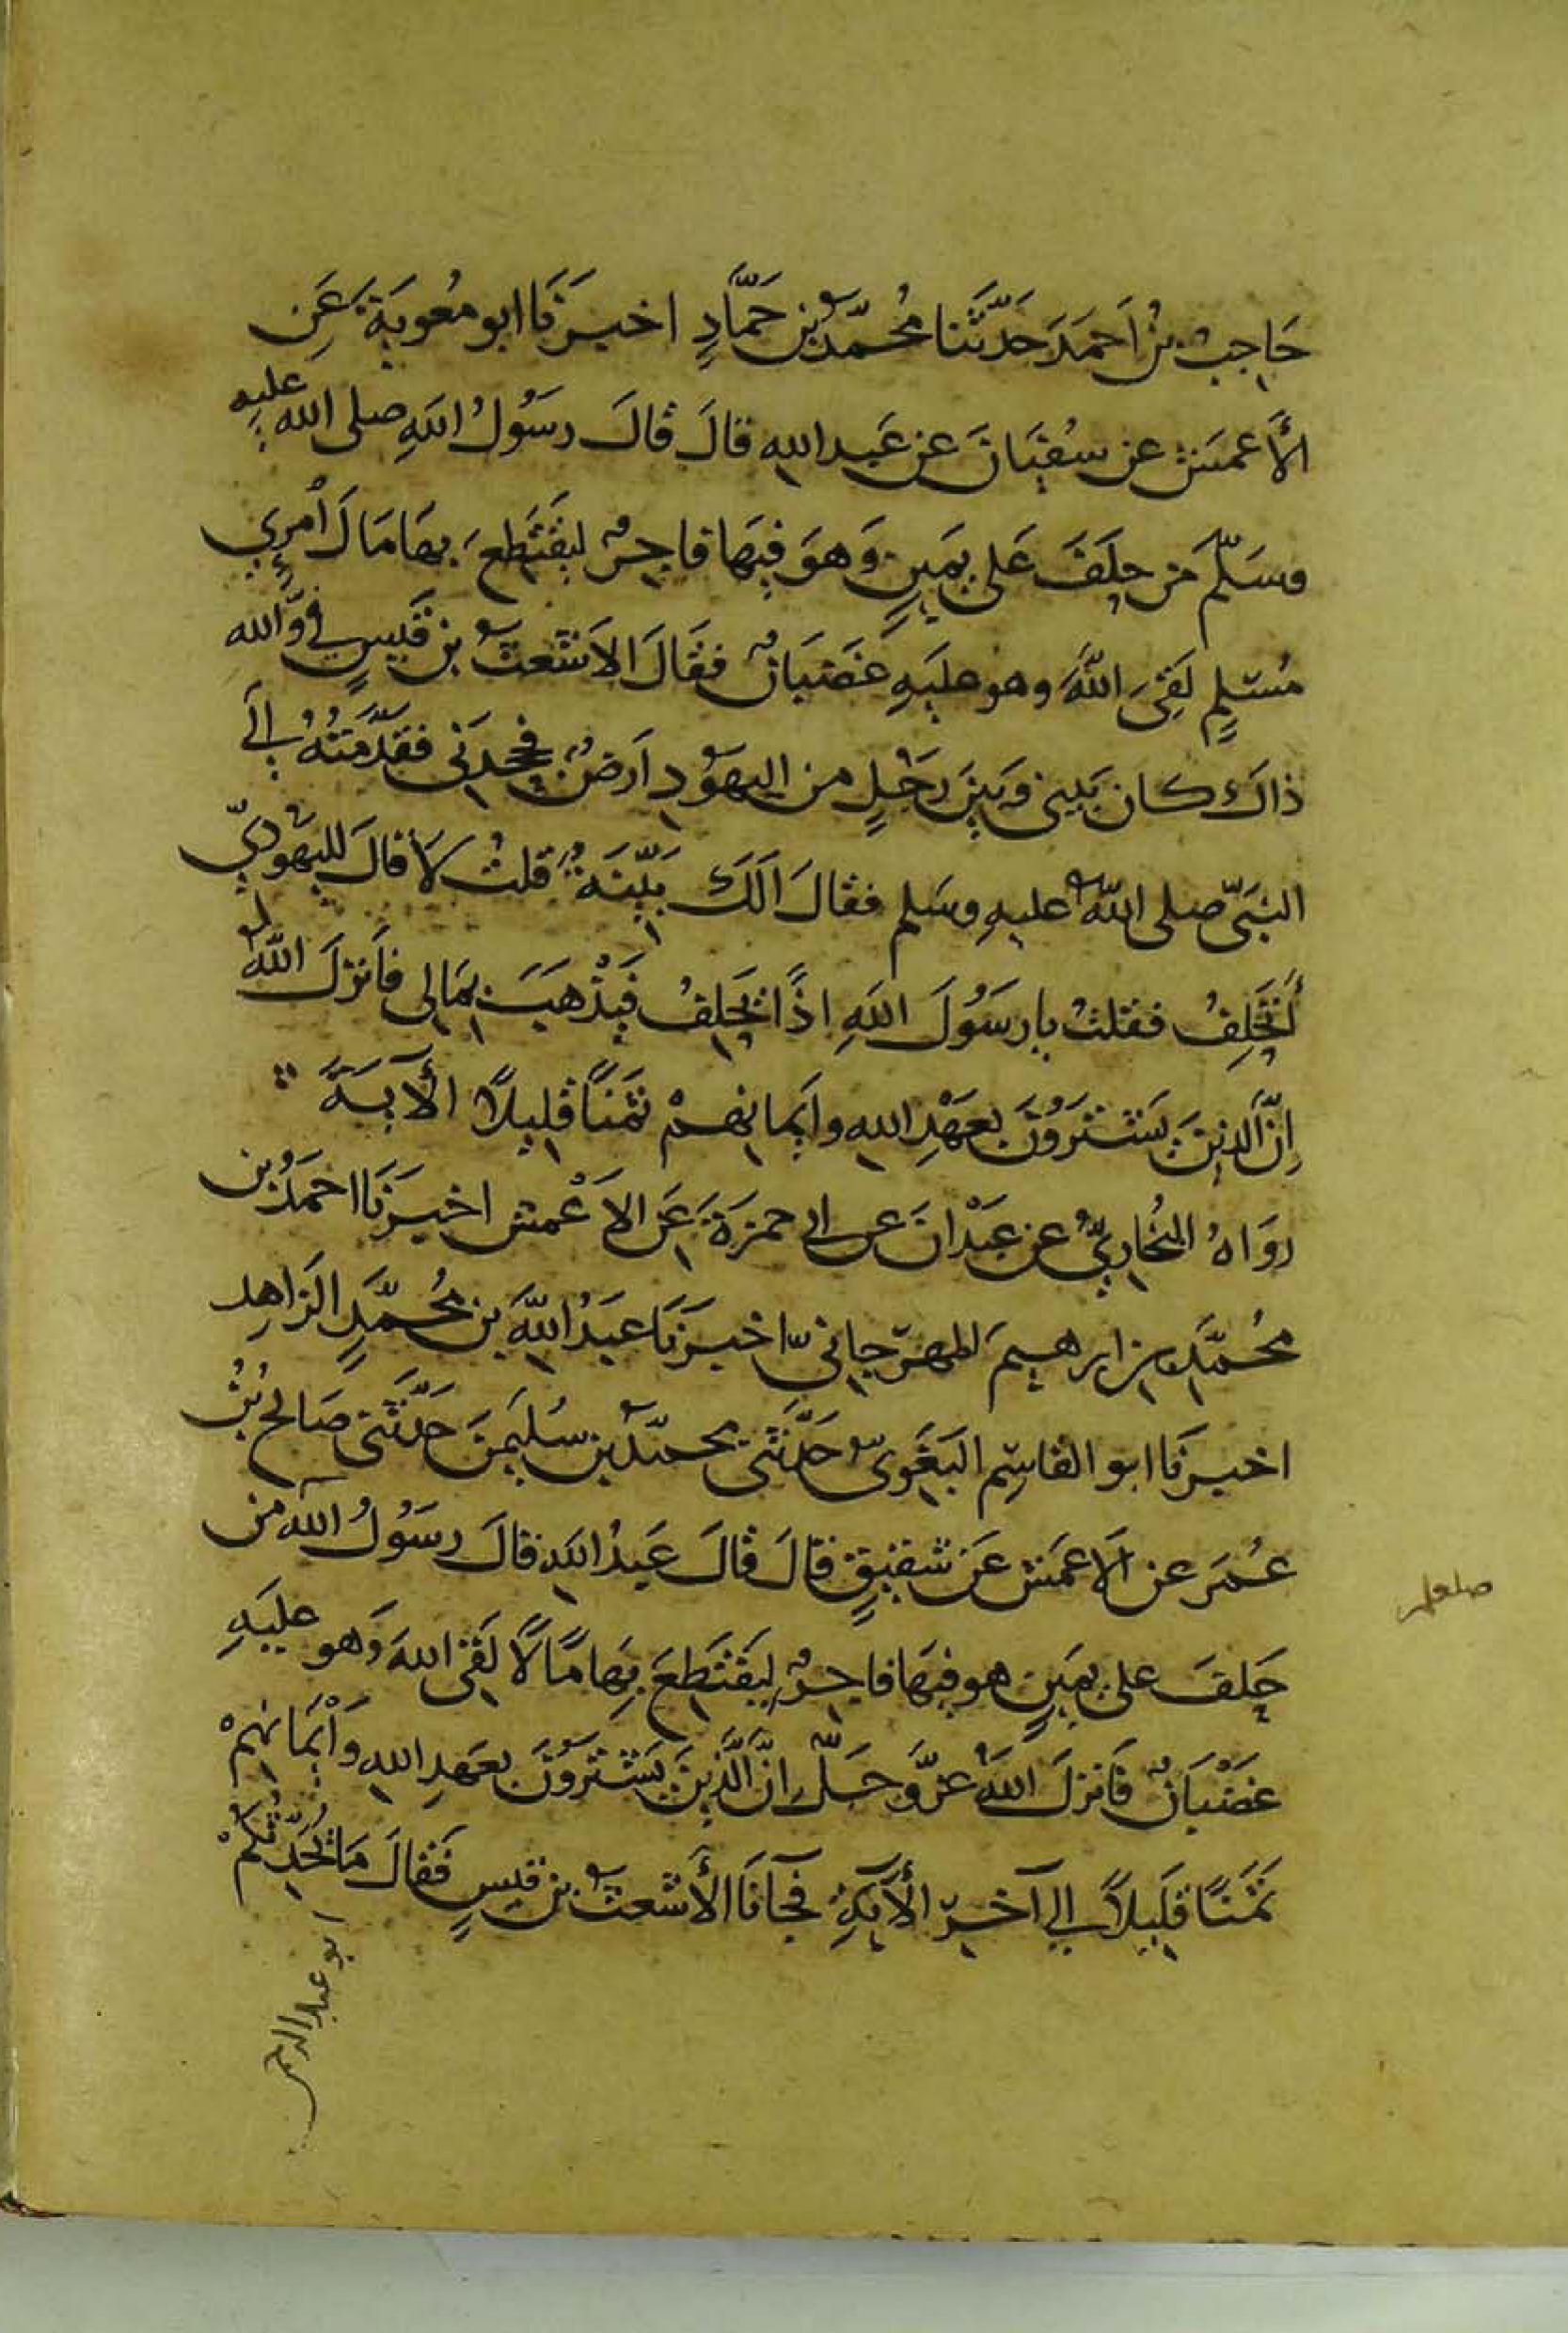 حَاجِبُ بنُ اَحمَدَ حَدَّثَنا مُحَمَّدُ بن حَمَّادٍ اخبرَنَا ابو مُعوِيَةَ عَنِ
الأَعمَش عن سُفيَانَ عن عَبدِ اللهِ قالَ قالَ رسَوُلُ اللهِ صلى الله عليهِ
وسَلَّم مَن حَلَفَ عَلى يَمينٍ وَهوَ فيهَا فاجِرٌ ليَقتَطِعَ بهَا مَالَ اُمرِيٍ
مُسْلِمٍ لَقِيَ اللهَ وهو عليَهِ غَضبَانٌ فقَالَ الاَشعَثُ بن قَيسٍ فيَّ وَالله
ذاكَ كان بَيني وَبَينَ رَجُلٍ من اليهوُدِ اَرضٌ فجحدَنى فقدَّمتُهُ الَى
النبَىّ صلى اللهُ عليهِ وسَلم فقالَ اَلَكَ بَيّنَةٌ قلتُ لاَ قالَ لليهَوُديّ
أَتَحَلِفُ فقلتُ يا رسَوُلَ اللهِ اذًا يَحلِفُ فيَذْهَبَ بمَالى فاَنزلَ اللهُ
اِنَّ الذينَ يَشتَروُنَ بعَهْدِ اللهِ وايمانِهمْ ثمَنَاً قليلاً الأيَةَ
روَاهُ البُخاريُّ عن عَبْدانَ عن ابى حمزَةَ عَن الاَعْمش اخبرَنَا احمَدُ بن
محُمَّدِ بن ابرهيمَ المهرَجاِنيّ اخبرَنَا عبَدُ اللهِ بن محُمَّدٍ الزاهِد
اخبرنَا ابو القاسِم البَغَوىّ حَدَّثَنى محمّدُ بن سُليمَنَ حَدثَنَى صَالح بنُ
عُمَر عن الاَعمَش عَن شَقيقٍ قالَ قالَ عَبدُ اللهِ قالَ رسَوُلُ الله من
صلعم
حَلفَ على يمَينٍ هو فيهَا فاجِرٌ ليَقتَطِعَ بهَا مَالاً لَقىَ اللهَ وَهو عليَهِ
غضْبَانٌ فَانزلَ اللهُ عزَّ وَجَلَّ اِنَّ الَّذينَ يَشتَروُنَ بعَهدِ اللهِ وَاَيمَانهِمْ
ثمَنَاً قلَيلاً الى آخرِ الأيَةِ فجآنَا الأشعثُ بن قيسٍ فقَالَ مَا يُحَدّثكُمْ
ابو عبد الرحمن